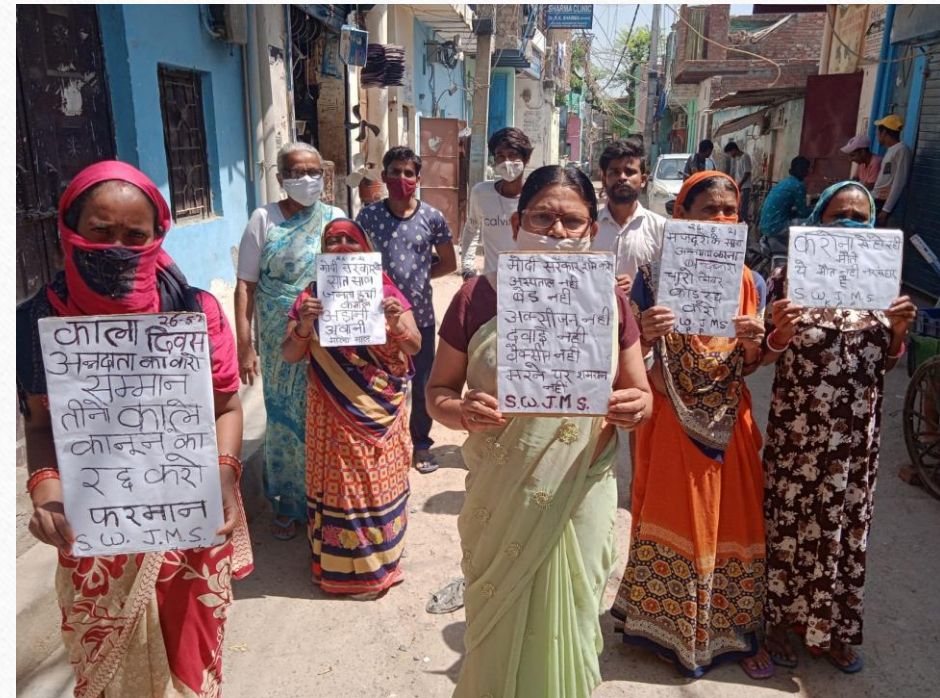 SHARMA CLINIC
काला दिवस
26-5-
अन्नदाता का करो
सम्मान
तीनों काले
कानून का
रद्द करो
फरमान
S.W. J.M.S.
मोदी सरकार
सात साल
जनता
अडानी
अंबानी
मोदी सरकार शर्म करो
अस्पताल नही
बेड नही
अक्सीजन नही
दवाई नही
वैक्सीन नही
मरने पर शमशान
नही
S.W.J.M.S.
26-5-21
मजदूरों के
चारो लेबर
कोड रद्द
करो
S.W. J.M.S
करोना से हो रही
मौते
ये मौत नही नरसंहार
है
S.W.J.M.S
calvin